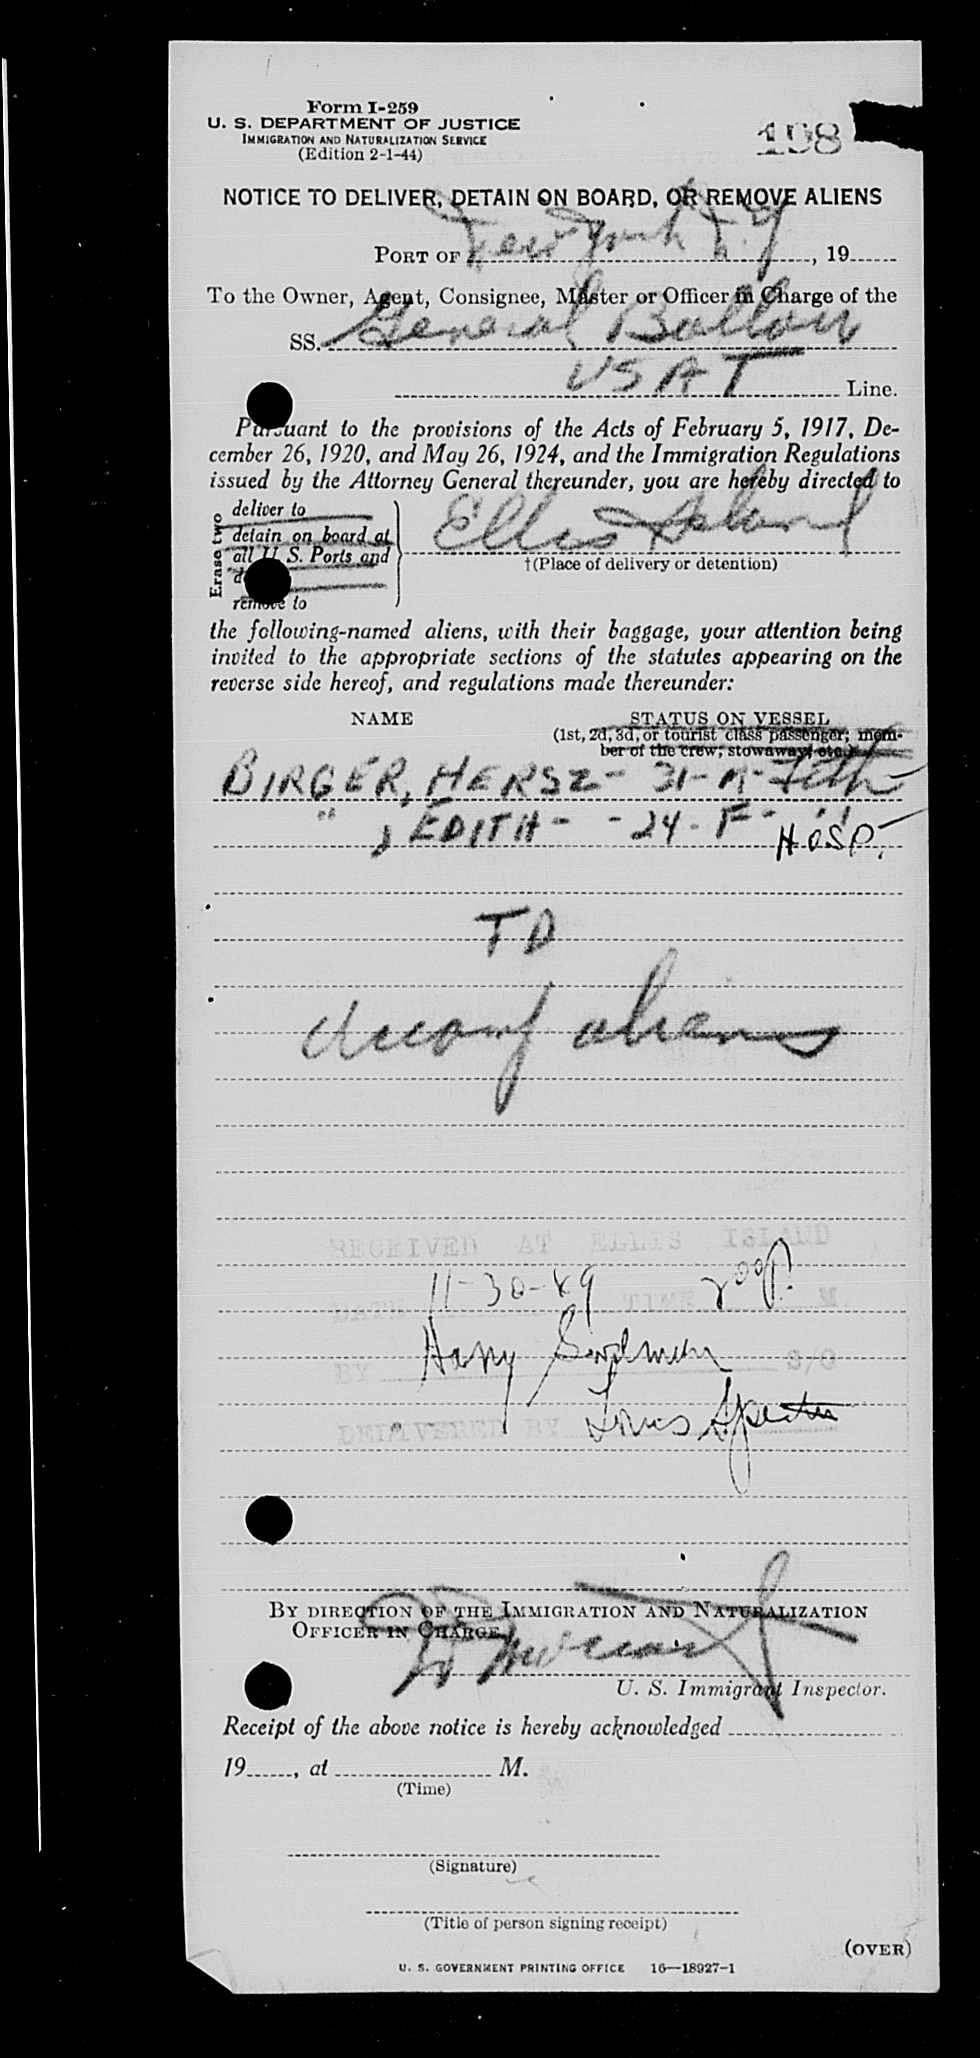 Form I-259
U. S. DEPARTMENT OF JUSTICE
IMMIGRATION AND NATURALIZATION SERVICE
(Edition 2-1-44)
198
NOTICE TO DELIVER, DETAIN ON BOARD, OR REMOVE ALIENS
PORT OF New York N.Y, 19
To the Owner, Agent, Consignee, Master or Officer in Charge of the
SS. General Ballou
USAT Line.
Pursuant to the provisions of the Acts of February 5, 1917, De-
cember 26, 1920, and May 26, 1924, and the Immigration Regulations
issued by the Attorney General thereunder, you are hereby directed to
Erase two
deliver to
detain on board at
all U. S. Ports and
remove to
Ellis Island
†(Place of delivery or detention)
the following-named aliens, with their baggage, your attention being
invited to the appropriate sections of the statutes appearing on the
reverse side hereof, and regulations made thereunder:
NAME STATUS ON VESSEL
(1st, 2d, 3d, or tourist class passenger; mem-
ber of the crew; stowaway; etc.)
BIRGER, HERSZ - 31 - M -
" , EDITH - - 24 - F - "
HOSP.
TD
aliens
RECEIVED AT ELLIS ISLAND
11-30-49 200 P.
DATE TIME M.
Harry
BY S/O
Louis Spector
DELIVERED BY
BY DIRECTION OF THE IMMIGRATION AND NATURALIZATION
OFFICER IN CHARGE
U. S. Immigrant Inspector.
Receipt of the above notice is hereby acknowledged
19, at M.
(Time)
(Signature)
(Title of person signing receipt)
(OVER)
U. S. GOVERNMENT PRINTING OFFICE 16—18927-1